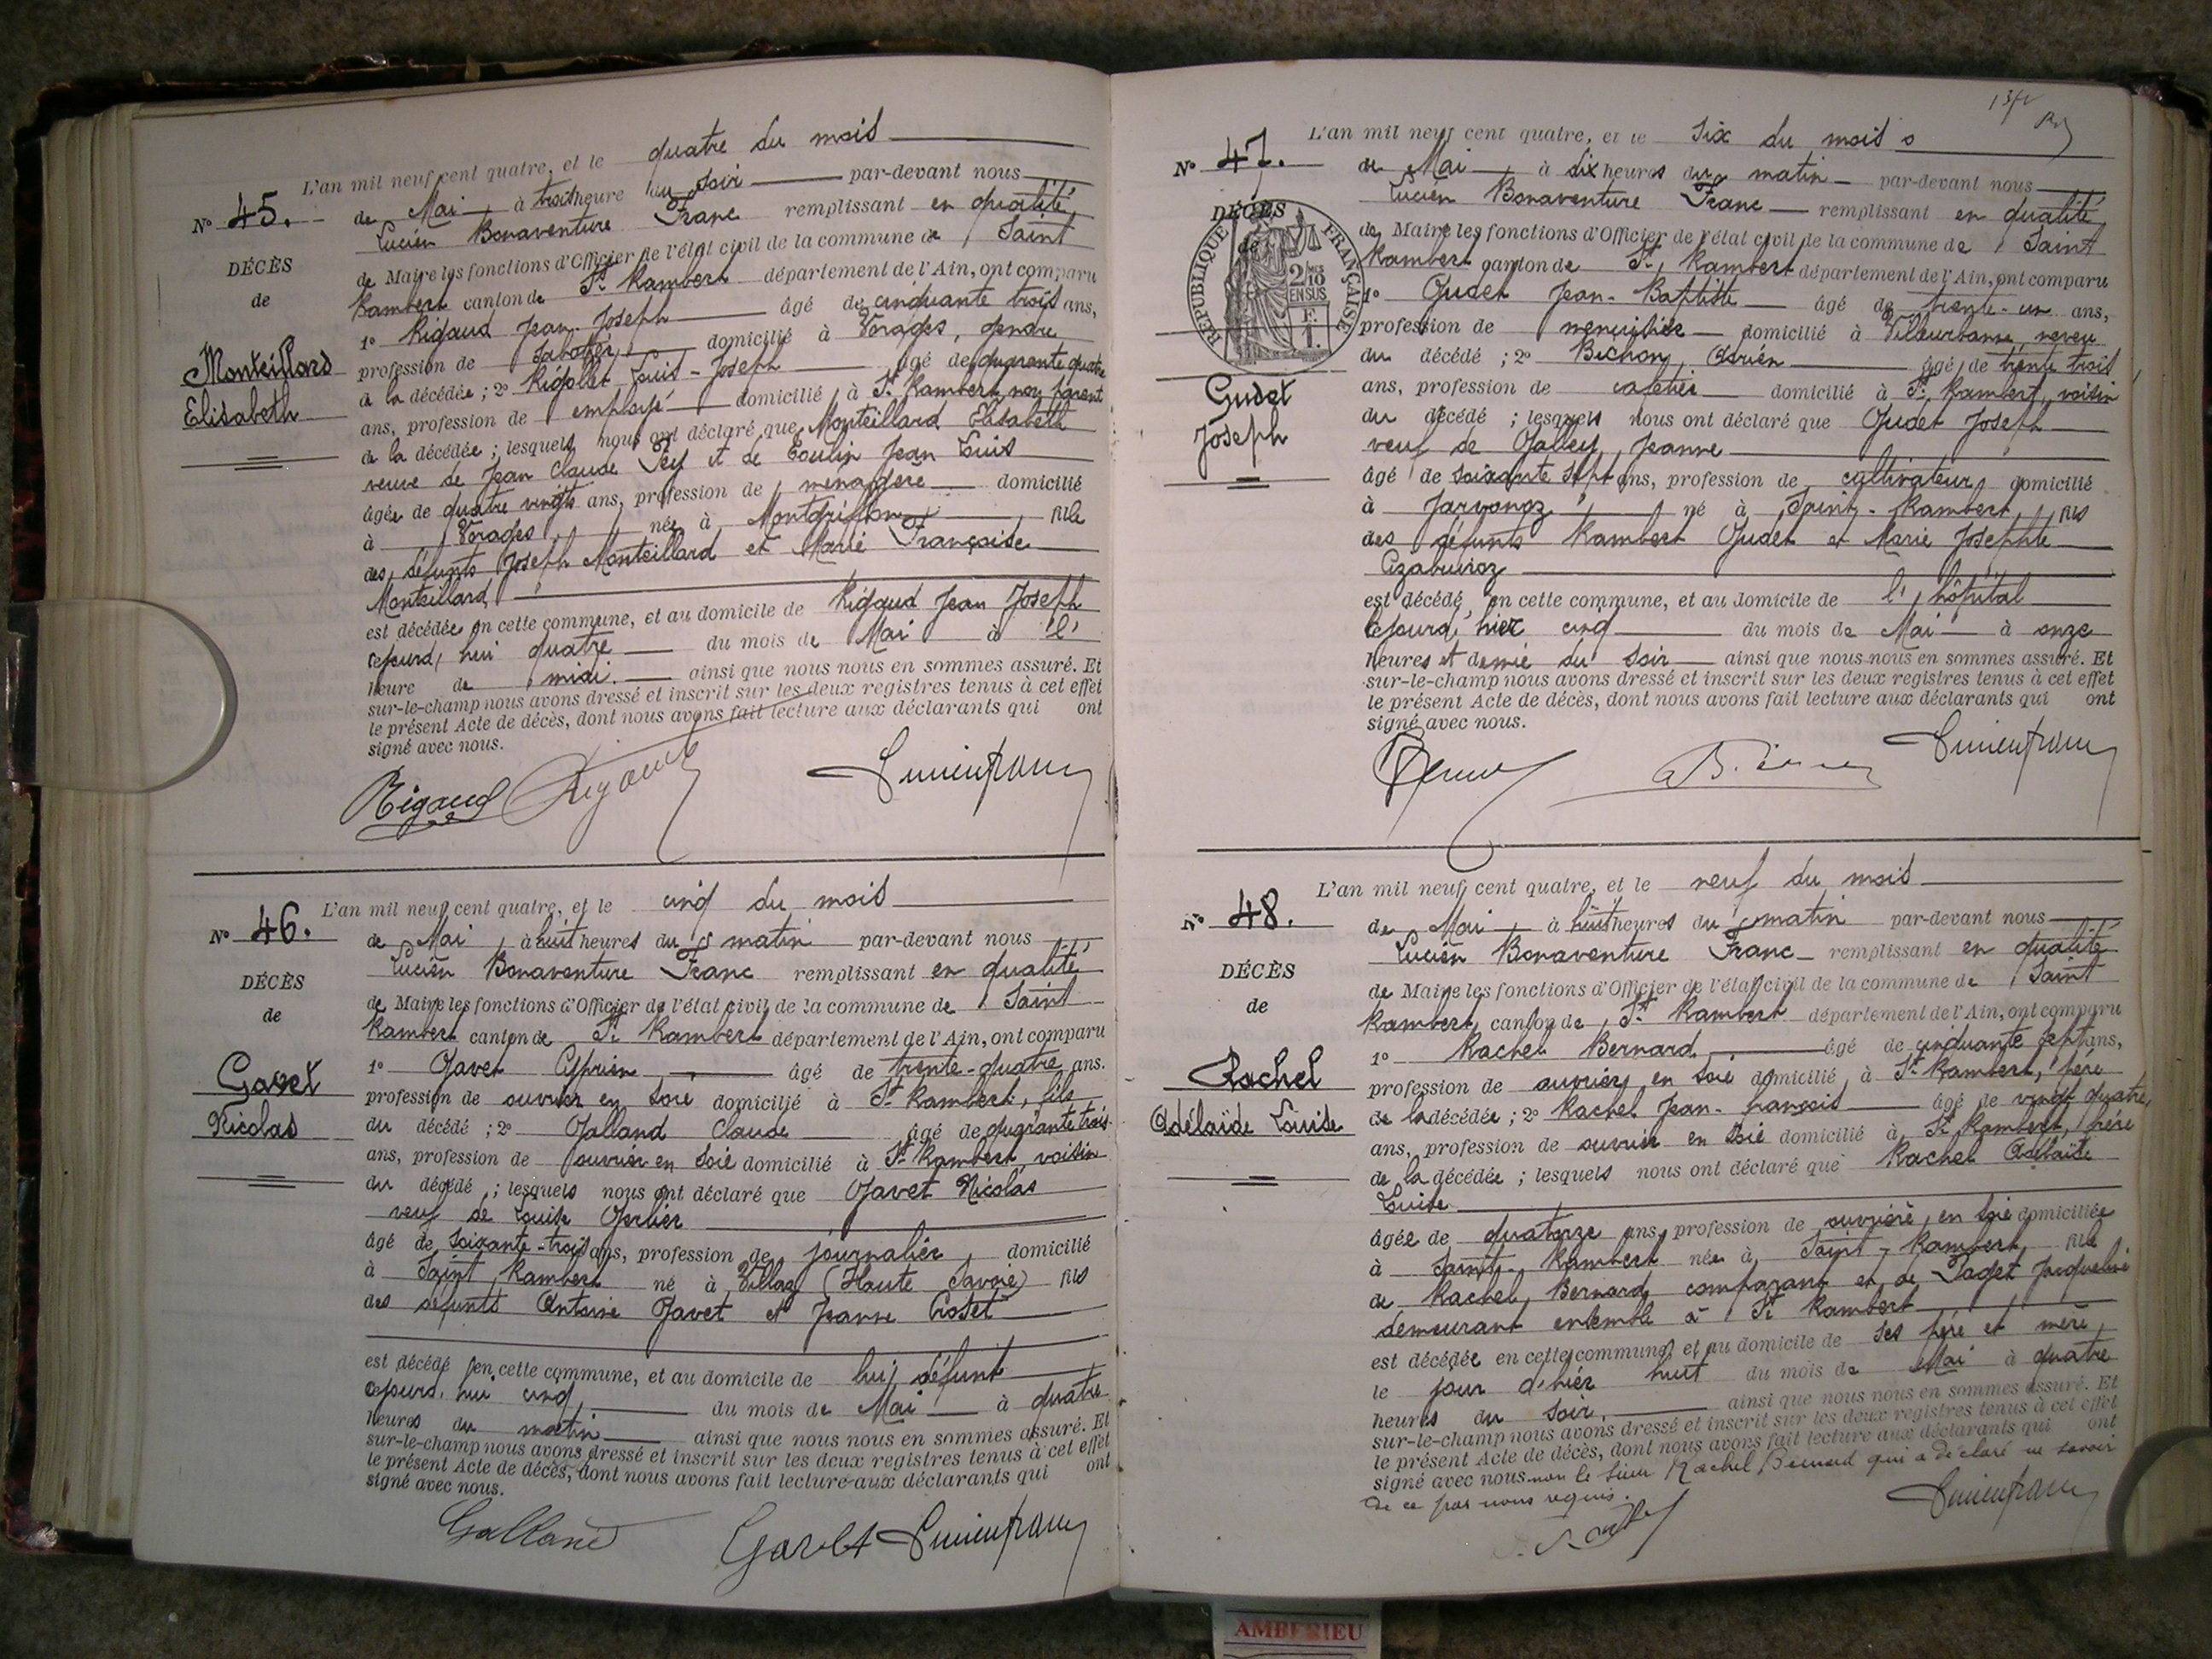 L'an mil neuf cent quatre, et le quatre du mois
N° 45.
de Mai à trois heure du soir par-devant nous
Lucien Bonaventure Franc remplissant en qualité
de Maire les fonctions d'Officier de l'état civil de la commune de Saint
Rambert canton de St Rambert département de l'Ain, ont comparu
DÉCÈS
de
Monteillard
Elisabeth
1° Rigaud Jean-Joseph âgé de cinquante trois ans,
profession de sabotier domicilié à Vorages, gendre
à la décédée ; 2° Rigollet Louis-Joseph âgé de quarante quatre
ans, profession de employé domicilié à St Rambert, non parent
de la décédée ; lesquels nous ont déclaré que Monteillard Elisabeth
veuve de Jean Claude Pey et de Goulin Jean Louis
âgée de quatre vingts ans, profession de ménagère domicilié
à Vorages née à Montgriffon, fille
des défunts Joseph Monteillard et Marie Françoise
Monteillard
est décédée en cette commune, et au domicile de Rigaud Jean Joseph
cejourd'hui quatre du mois de Mai à l'
heure de midi. ainsi que nous nous en sommes assuré. Et
sur-le-champ nous avons dressé et inscrit sur les deux registres tenus à cet effet
le présent Acte de décès, dont nous avons fait lecture aux déclarants qui ont
signé avec nous.
Rigaud
L'an mil neuf cent quatre, et le cinq du mois
N° 46.
de Mai, à huit heures du matin par-devant nous
Lucien Bonaventure Franc remplissant en qualité
de Maire les fonctions d'Officier de l'état civil de la commune de Saint
Rambert canton de St Rambert département de l'Ain, ont comparu
DÉCÈS
de
Gavet
Nicolas
1° Gavet Cyprien âgé de trente-quatre ans.
profession de ouvrier en soie domicilié à St Rambert, fils
du décédé ; 2° Galland Claude âgé de quarante trois
ans, profession de ouvrier en soie domicilié à St Rambert, voisin
du décédé ; lesquels nous ont déclaré que Gavet Nicolas
veuf de Louise Gerlier
âgé de soixante-trois ans, profession de journalier, domicilié
à Saint Rambert né à Villaz (Haute Savoie) fils
des défunts Antoine Gavet et Jeanne
est décédé en cette commune, et au domicile de lui défunt
cejourd'hui cinq du mois de Mai à quatre
heures du matin ainsi que nous nous en sommes assuré. Et
sur-le-champ nous avons dressé et inscrit sur les deux registres tenus à cet effet
le présent Acte de décès, dont nous avons fait lecture aux déclarants qui ont
signé avec nous.
Galland Gavet Lucien Franc
L'an mil neuf cent quatre, et le six du mois
N° 47.
de Mai à dix heures du matin par-devant nous
Lucien Bonaventure Franc remplissant en qualité
de Maire les fonctions d'Officier de l'état civil de la commune de Saint
Rambert canton de St Rambert département de l'Ain, ont comparu
DÉCÈS
de
RÉPUBLIQUE FRANÇAISE
2/10
EN SUS
Gudet
Joseph
1° Gudet Jean-Baptiste âgé de trente-un ans,
profession de menuisier domicilié à Villeurbanne, neveu
du décédé ; 2° Bichon, Adrien âgé de trente trois
ans, profession de cafetier domicilié à St Rambert, voisin
du décédé ; lesquels nous ont déclaré que Gudet Joseph
veuf de Galley Jeanne
âgé de soixante sept ans, profession de cultivateur domicilié
à Javornoz né à Saint-Rambert, fils
des défunts Rambert Gudet et Marie Josephte
est décédé, en cette commune, et au domicile de l'hôpital
cejourd'hier cinq du mois de Mai à onze
heures et demie du soir ainsi que nous nous en sommes assuré. Et
sur-le-champ nous avons dressé et inscrit sur les deux registres tenus à cet effet
le présent Acte de décès, dont nous avons fait lecture aux déclarants qui ont
signé avec nous.
L'an mil neuf cent quatre, et le neuf du mois
N° 48.
de Mai à huit heures du matin par-devant nous
Lucien Bonaventure Franc remplissant en qualité
de Maire les fonctions d'Officier de l'état civil de la commune de Saint
Rambert, canton de St Rambert département de l'Ain, ont comparu
DÉCÈS
de
Rachel
Adélaïde Louise
1° Rachel Bernard âgé de cinquante sept ans,
profession de ouvrier en soie domicilié à St Rambert, père
de la décédée ; 2° Rachel Jean-François âgé de vingt quatre,
ans, profession de ouvrier en soie domicilié à St Rambert, frère
de la décédée ; lesquels nous ont déclaré que Rachel Adélaïde
Louise
âgée de quatorze ans, profession de ouvrière en soie domiciliée
à Saint-Rambert née à Saint-Rambert fille
de Rachel Bernard comparant et de Paget Jacqueline
demeurant ensemble à St Rambert
est décédée en cette commune, et au domicile de ses père et mère,
le jour d'hier huit du mois de Mai à quatre
heures du soir. ainsi que nous nous en sommes assuré. Et
sur-le-champ nous avons dressé et inscrit sur les deux registres tenus à cet effet
le présent Acte de décès, dont nous avons fait lecture aux déclarants qui ont
signé avec nous non le sieur Rachel Bernard qui a déclaré ne savoir
de ce par nous requis.
AMBERIEU